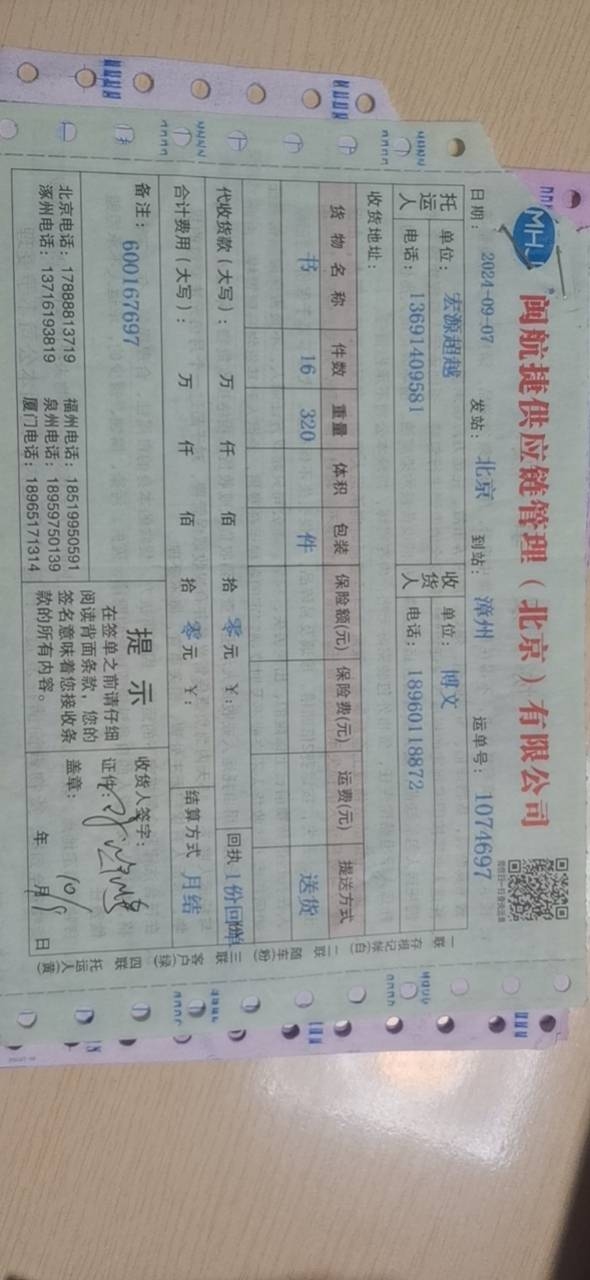 MHJ
闽航捷供应链管理（北京）有限公司
日期： 2024-09-07 发站： 北京 到站： 漳州 运单号： 1074697
托运人 单位： 宏源超越 收货人 单位： 博文
电话： 13691409581 电话： 18960118872
收货地址：
货物名称 件数 重量 体积 包装 保险额(元) 保险费(元) 运费(元) 提送方式
书 16 320 件 送货
代收货款（大写）： 万 仟 佰 拾 零元 ￥： 回执 1份回单
合计费用（大写）： 万 仟 佰 拾 零元 ￥： 结算方式 月结
备注： 600167697
提示
在签单之前请仔细
阅读背面条款，您的
签名意味着您接收条
款的所有内容。
收货人签字：
证件：
盖章：
年 月 日
10/9
北京电话：17888813719 福州电话：18519950591
涿州电话：13716193819 泉州电话：18959750139
厦门电话：18965171314
一联 存根记帐(白) 二联 随车(粉) 三联 客户(绿) 四联 托运人(黄)